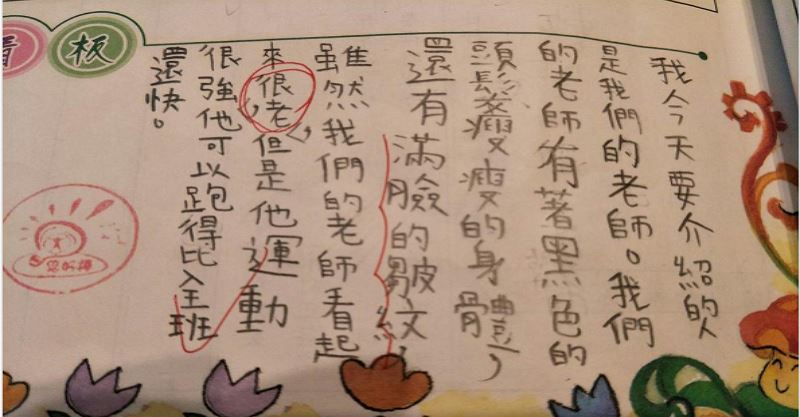 看板
我今天要介紹的人
是我們的老師。我們
的老師有著黑色的
頭髮瘦瘦的身體,
還有滿臉的皺紋
雖然我們的老師看起
來很老,但是他運動
很強他可以跑得比全班
還快。